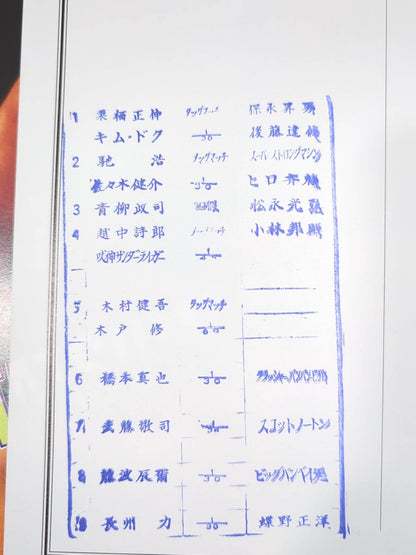 1 栗栖正伸 タッグマッチ 保永昇男
キム・ドク 1/30 後藤達俊
2 馳 浩 タッグマッチ スーパーストロングマシン
佐々木健介 1/30 ヒロ斉藤
3 青柳政司 松永光弘
4 越中詩郎 小林邦昭
獣神サンダーライガー
5 木村健吾 タッグマッチ
木戸 修
6 橋本真也 1/30 クラッシャーバンバンビガロ
7 武藤敬司 スコットノートン
8 藤波辰爾 1/30 ビッグバンベイダー
長州 力 1/30 蝶野正洋